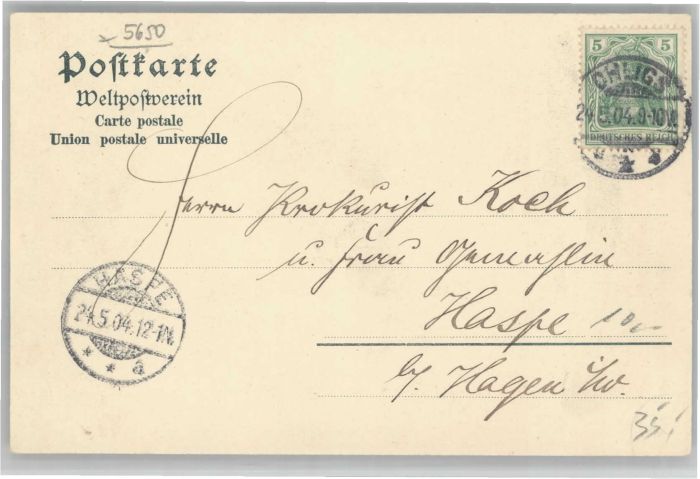 5650
Postkarte
Weltpostverein
Carte postale
Union postale universelle
5 5
DEUTSCHES REICH
OHLIGS
24.5.04.9-10V.
* a
Herrn Prokurist Koch
u. Frau Gemahlin
Haspe
10,-
b/ Hagen i/w.
HASPE
24.5.04.12-1N.
* * a
35